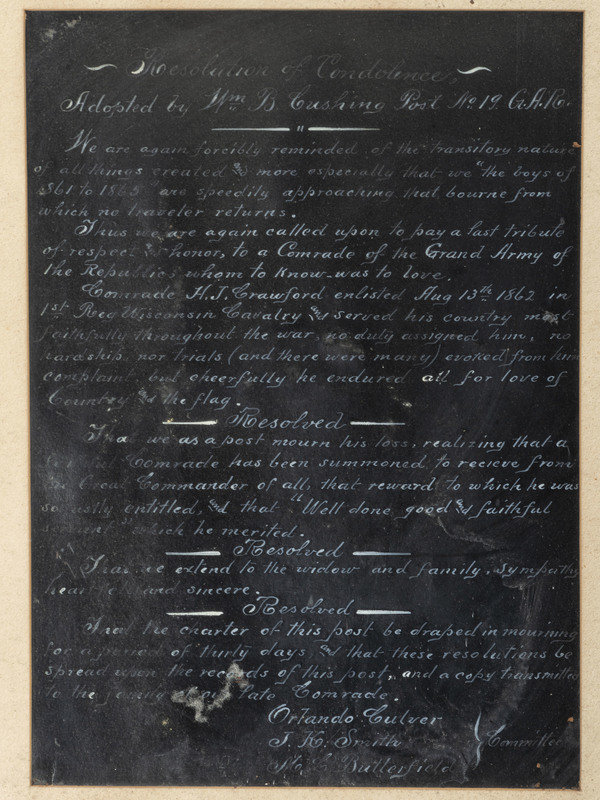 Resolution of Condolence.
Adopted by Wm B Cushing Post No 19. G.A.R.
We are again forcibly reminded of the transitory nature
of all things created & more especially that we "the boys of
1861 to 1865" are speedily approaching that bourne from
which no traveler returns.
Thus we are again called upon to pay a last tribute
of respect & honor, to a Comrade of the Grand Army of
the Republic, whom to know was to love.
Comrade H.J. Crawford enlisted Aug 13th 1862 in
1st Reg Wisconsin Cavalry & served his country most
faithfully throughout the war, no duty assigned him, no
hardship, nor trials (and there were many) evoked from him
complaint, but cheerfully he endured all for love of
Country & the flag.
Resolved
That we as a post mourn his loss, realizing that a
Comrade has been summoned, to recieve from
the Great Commander of all, that reward to which he was
so justly entitled, and that "Well done good & faithful
servant" which he merited.
Resolved
That we extend to the widow and family, sympathy
heartfelt and sincere.
Resolved
That the charter of this post be draped in mourning
for a period of thirty days, and that these resolutions be
spread upon the records of this post, and a copy transmitted
to the family of our late Comrade.
Orlando Culver
J. K. Smith
Committee
Butterfield